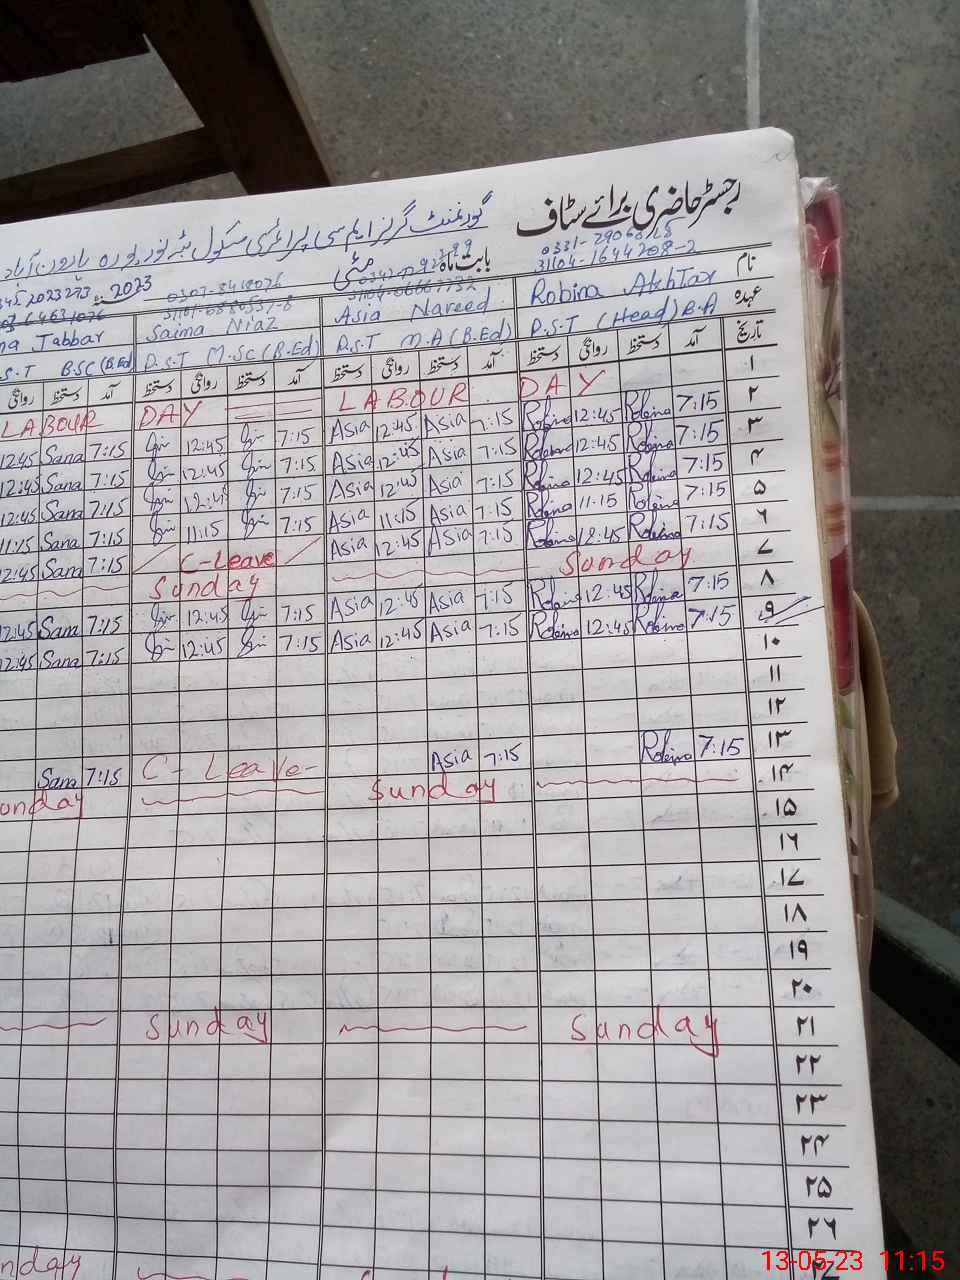 رجسٹر حاضری برائے سٹاف
گورنمنٹ گرلز ایم سی پرائمری سکول
بابت ماہ مئی 2023
0331-
31104-1644208-2
0307-
نام Robina Akhtar Asia Nareed Saima Niaz Jabbar
عہدہ P.S.T (Head) B.A P.S.T M.A (B.Ed) P.S.T M.SC (B.Ed) S.T BSC (B.Ed)
تاریخ آمد دستخط روانگی دستخط آمد دستخط روانگی دستخط آمد دستخط روانگی دستخط آمد دستخط روانگی
۱ LABOUR DAY LABOUR DAY
۲ 7:15 Robina 12:45 Robina 7:15 Asia 12:45 Asia 7:15 12:45 7:15 Sana 12:45
۳ 7:15 Robina 12:45 Robina 7:15 Asia 12:45 Asia 7:15 12:45 7:15 Sana 12:45
۴ 7:15 Robina 12:45 Robina 7:15 Asia 12:45 Asia 7:15 12:45 7:15 Sana 12:45
۵ 7:15 Robina 11:15 Robina 7:15 Asia 11:15 Asia 7:15 11:15 7:15 Sana 11:15
۶ 7:15 Robina 12:45 Robina 7:15 Asia 12:45 Asia C-Leave 7:15 Sana 12:45
۷ Sunday Sunday
۸ 7:15 Robina 12:45 Robina 7:15 Asia 12:45 Asia 7:15 12:45 7:15 Sana 12:45
۹ 7:15 Robina 12:45 Robina 7:15 Asia 12:45 Asia 7:15 12:45 7:15 Sana 12:45
۱۰
۱۱
۱۲
۱۳ 7:15 Robina 7:15 Asia C-Leave- 7:15 Sana
۱۴ Sunday Sunday
۱۵
۱۶
۱۷
۱۸
۱۹
۲۰
۲۱ Sunday Sunday
۲۲
۲۳
۲۴
۲۵
۲۶
13-05-23 11:15